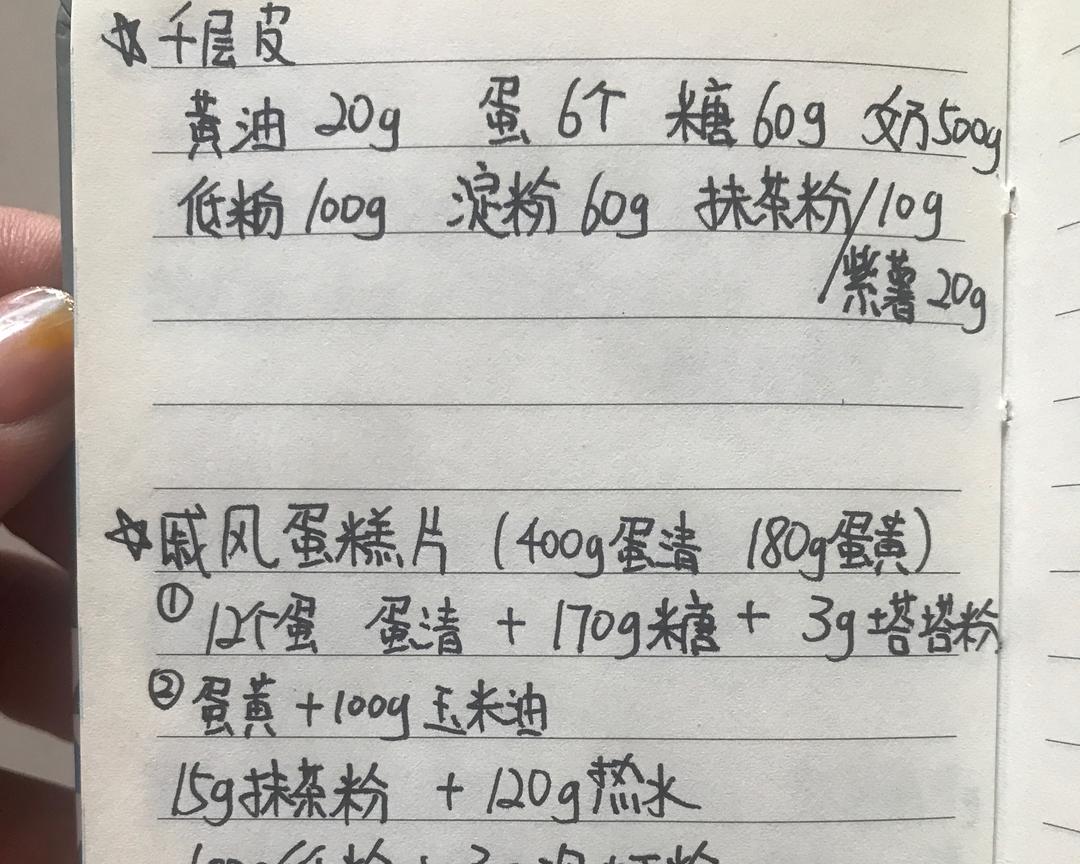 ☆千层皮
黄油 20g 蛋 6个 糖 60g 奶500g
低粉 100g 淀粉 60g 抹茶粉/10g
/紫薯 20g
☆戚风蛋糕片 (400g蛋清 180g蛋黄)
① 12个蛋 蛋清 + 170g糖 + 3g塔塔粉
② 蛋黄 + 100g 玉米油
15g抹茶粉 + 120g热水